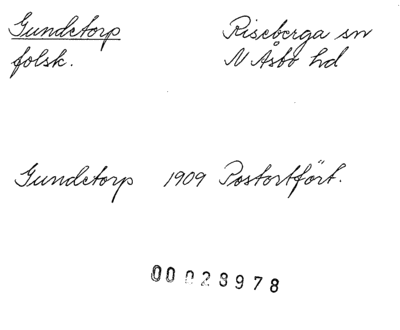 Gundetorp Riseberga sn
folsk. N Åsbo hd
Gundetorp 1909 Postortfört.
00023978